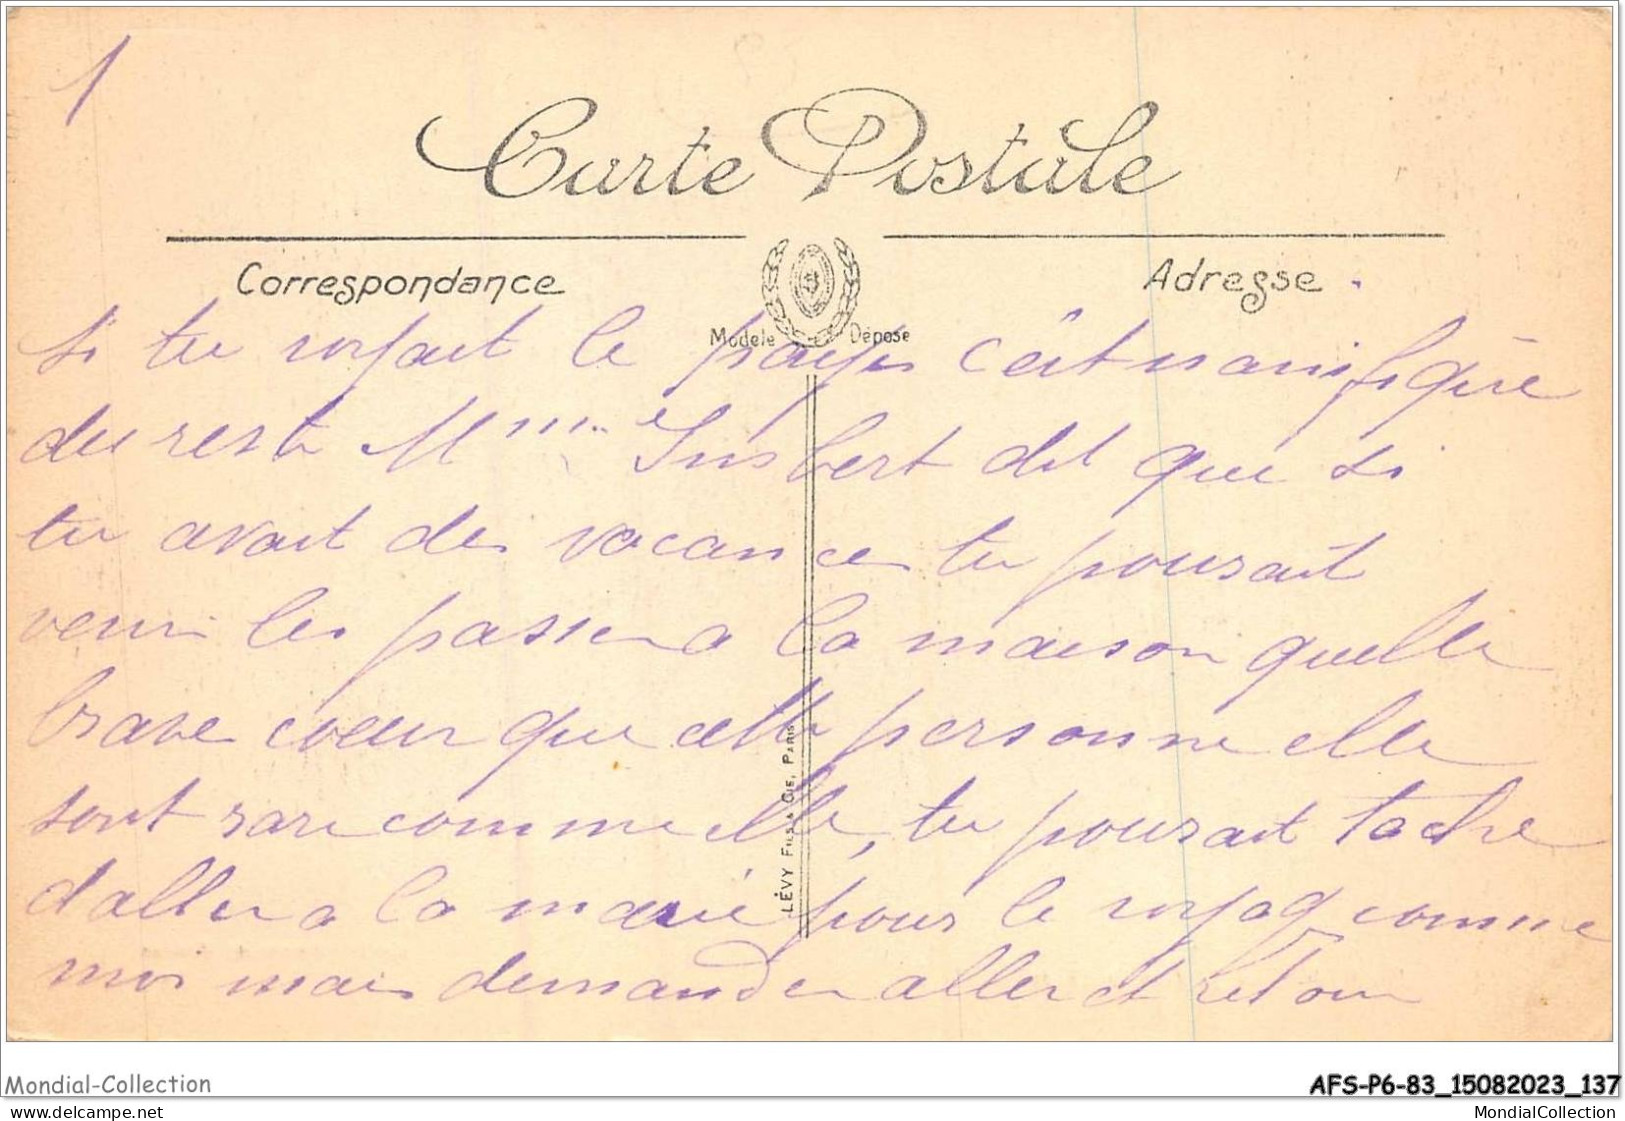 1
Carte Postale
Correspondance
Adresse
Modèle Déposé
si tu voyait le payes c'ait manifique
du reste Mme Imbert dit que si
tu avait des vacances tu pourait
venir les passer a la maison quelle
brave cœur que cette personne elle
sont rare comme elle, tu pourait tache
daller a la mairie pour le voyag comme
moi mais demander aller et retour
LÉVY FILS & CIE, PARIS
Mondial-Collection
AFS-P6-83_15082023_137
www.delcampe.net
MondialCollection